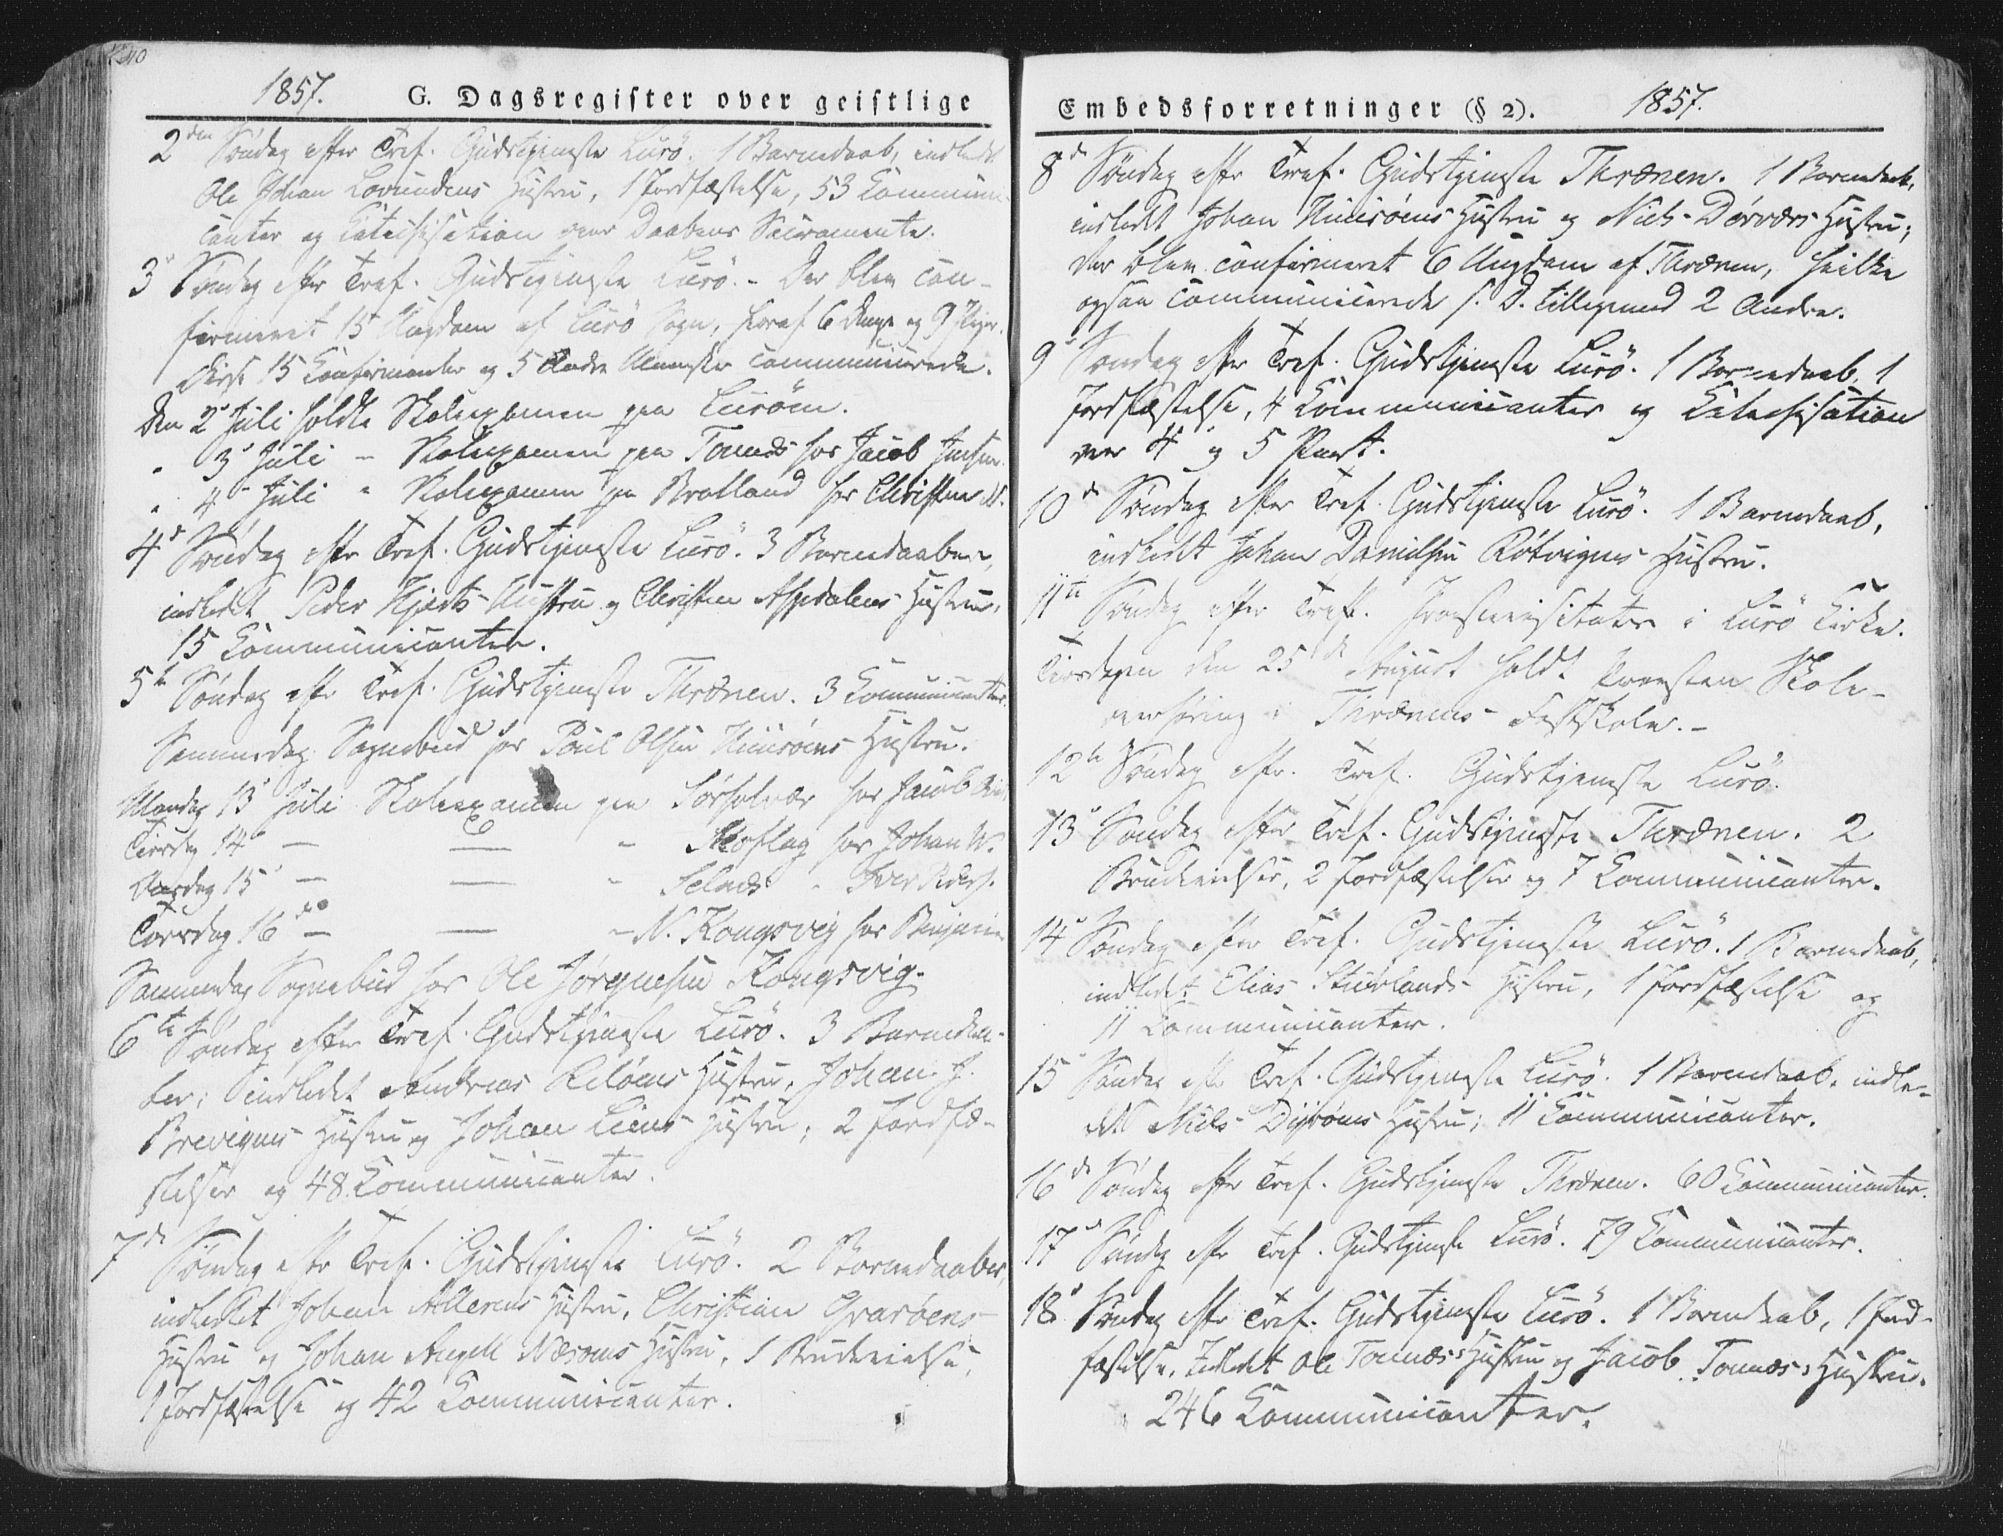 240
1857. G. Dagsregister over geistlige
2den Søndag efter Tref. Gudstjeneste Lurö. 1 Barnedaab, indledet
Ole Johan Lovundens Hustru, 1 Jordfæstelse, 53 Kommuni-
canter og Catechisation over Daabens Sacramente.
3d Søndag efter Tref. Gudstjeneste Lurö. - Der blev con-
firmeret 15 Ungdom af Lurö Sogn, hvoraf 6 Drenge og 9 Piger.
Disse 15 Confirmanter og 5 Andre communicerede.
Den 2d Juli holdte Skolexamen paa Luröen.
" 3d Juli - Skolexamen paa Tonnes hos Jacob Jensen.
" 4d Juli " Skolexamen paa Bratland hos Christen N.
4d Søndag efter Tref. Gudstjeneste Lurö. 3 Barnedaaber,
indledet Peder Hjerts Hustru og Christen Aspdalens Hustru,
15 Communicanter.
5te Søndag efter Tref. Gudstjeneste Thrænen. 3 Communicanter.
Sammedag Sognebud hos Poul Olsen Huusöens Hustru.
Mandag 13d Juli Skolexamen paa Sörsolvær hos Jacob
Tirsdag 14d — — " Skoflag hos Johan W.
Onsdag 15d — — " Selnæs " Iver Peders.
Torsdag 16de — — " N. Kongsvig hos Benjamin
Sammedag Sognebud hos Ole Jörgensen Kongsvig.
6te Söndag efter Tref. Gudstjeneste Lurö. 3 Barnedaa-
ber; indledet Andreas Hustru, Johan J.
Brevigens Hustru og Johan Liens Hustru; 2 Jordfæ-
stelser og 48 Kommunicanter.
7de Søndag efter Tref. Gudstjeneste Lurö. 2 Barnedaaber,
indledet Johan Hustru, Christian Qvaröens
Hustru og Johan Angell Næsöens Hustru, 1 Brudevielse,
1 Jordfæstelse og 42 Communicanter.
Embedsforretninger (§ 2). 1857.
8de Søndag efter Tref. Gudstjeneste Thrænen. 1 Barnedaab,
indledet Johan Huusöens Hustru og Niels Dörværs Hustru;
der blev confirmeret 6 Ungdom af Thrænen, hvilke
ogsaa communicerede s. D. tilligemed 2 Andre.
9d Søndag efter Tref. Gudstjeneste Lurö. 1 Barnedaab, 1
Jordfæstelse, 4 Kommunicanter og Katechisation
over 4 og 5 Part.
10de Søndag efter Tref. Gudstjeneste Lurö. 1 Barnedaab,
indledet Johan Danielsen Rötvigens Hustru.
11te Søndag efter Tref. Provstevisitats i Lurö Kirke.
Tirsdagen den 25de August holdt Provsten Skole-
overhøring i Thrænens Fastskole. -
12te Søndag efter Tref. Gudstjeneste Lurö.
13d Søndag efter Tref. Gudstjeneste Thrænen. 2
Brudevielser, 2 Jordfæstelser og 7 Communicanter.
14d Søndag efter Tref. Gudstjeneste Lurö. 1 Barnedaab,
indledet Elias Stuvlands Hustru, 1 Jordfæstelse og
11 Communicanter.
15d Søndag efter Tref. Gudstjeneste Lurö. 1 Barnedaab, indle-
det Niels Dijröens Hustru; 11 Communicanter.
16de Søndag efter Tref. Gudstjeneste Thrænen. 60 Communicanter.
17d Søndag efter Tref. Gudstjeneste Lurö. 79 Communicanter.
18d Søndag efter Tref. Gudstjeneste Lurö. 1 Barnedaab, 1 Jord-
fæstelse, Indledet Ole Tonnæs's Hustru og Jacob Tonnæs's Hustru.
246 Communicanter.